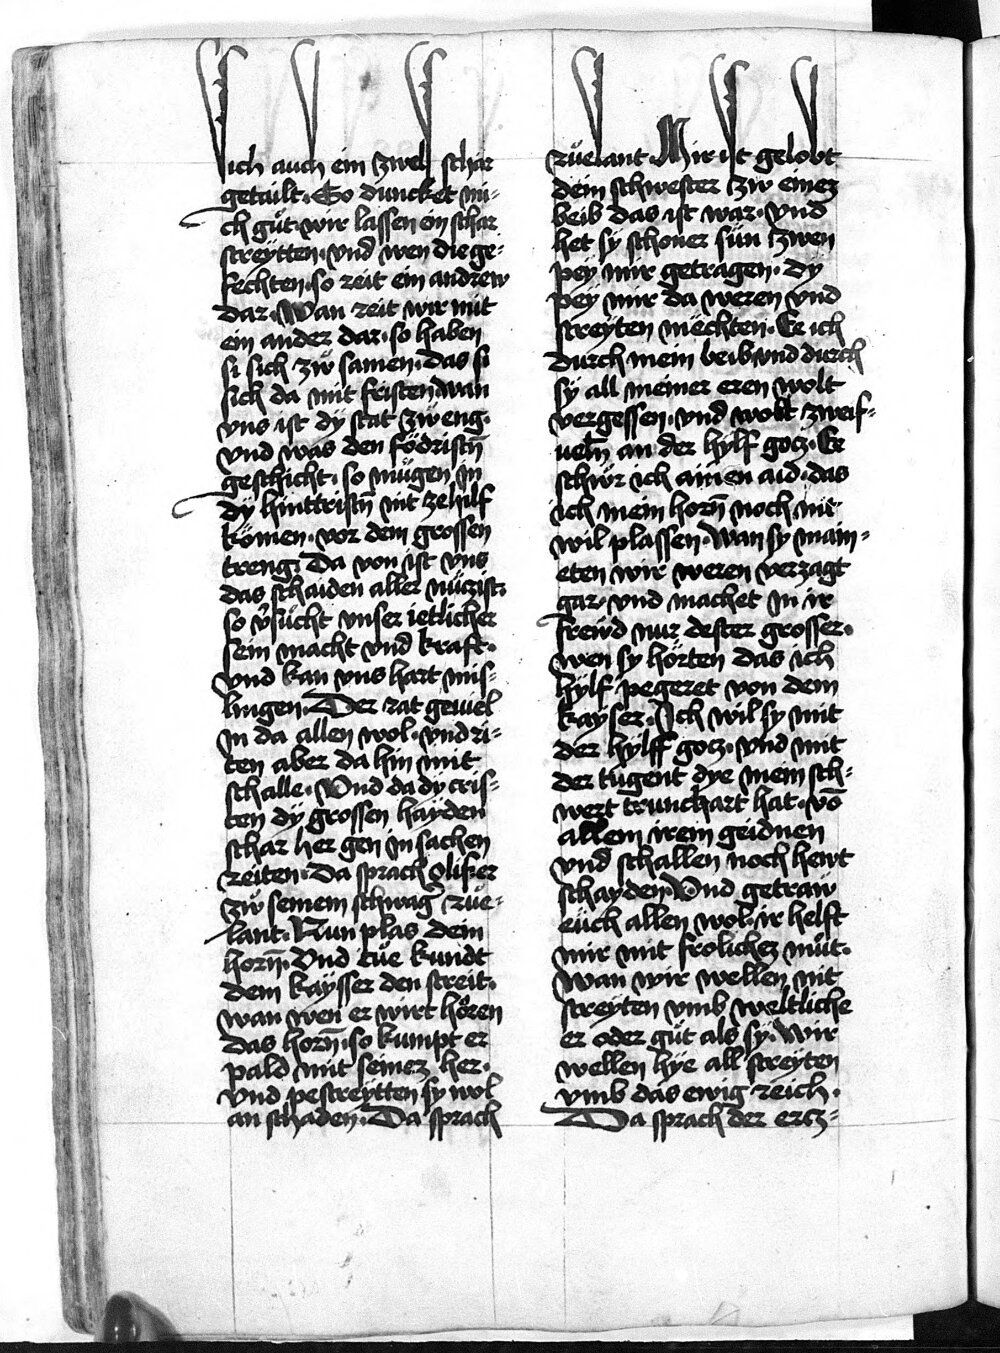 sich auch ein zwelf schar
getailt. So duncket mi-
ch gůt. wir lassen ein schar
streytten. vnd wen die ge-
fechten. so reit ein andrew
dar. Wan reit wir mit
ein ander dar. so haben
si sich zw samen. das si
sich da mit fristen. wan
vns ist dy stat zw eng.
vnd was den födristn̄
geschicht. so mügen in
dy hinttristn̄ nit ze hilf
kömen. vor dem grossen
treng. Da von ist vns
das schaiden aller nüczist.
so v̂sücht vnser ietlicher
sein macht vnd kraft.
vnd kan vns hart mis-
lingen. Der rat geviel
in da allen wol. vnd ri-
ten aber da hin mit
schalle. Vnd da dy cris-
ten dy grossen hayden
schar her gen in sachen
reiten. Da sprach olifier
zw seinem schwag̉ rue-
lant. Nun plas dein
horn̄. Vnd tůe kundt
dem kaysser den streit.
wan wen er wirt hören
das horn̄. so kumpt er
pald mit seinez her.
vnd pestreytten sy wol
an schaden. Da sprach
růelant. Mir ist gelobt
dein schwester zw einez
beib das ist war. vnd
het sy schoner sün zwen
pey mir getragen. dy
pey mir da weren vnd
streyten mechten. Ee ich
durch mein beib vnd durch
sy all meiner eren wolt
vergessen. vnd wolt zweif-
ueln̄ an der hylf gocz. Ee
schwr ich ainen aid. das
ich mein horn̄ noch nit
wil plassen. Wan sy main-
eten wir weren verzagt
gar. vnd machet in ir
frewd nur dester grosser.
wen sy hörten das ich
hylf pegeret von dem
kayser. Ich wil sy mit
der hylff gocz. vnd mit
der tugent dye mein sch-
wert trunchart hat. vō
allem irem geidnen
vnd schallen noch hewt
schayden. Vnd getraw
euch allen wol. ir helft
mir mit frolichez můt.
Wan wir wellen nit
streyten vmb weltliche
er oder gůt als sy. Wir
wellen hye all streyten
vmb das ewig reich.
Da sprach der ertz-